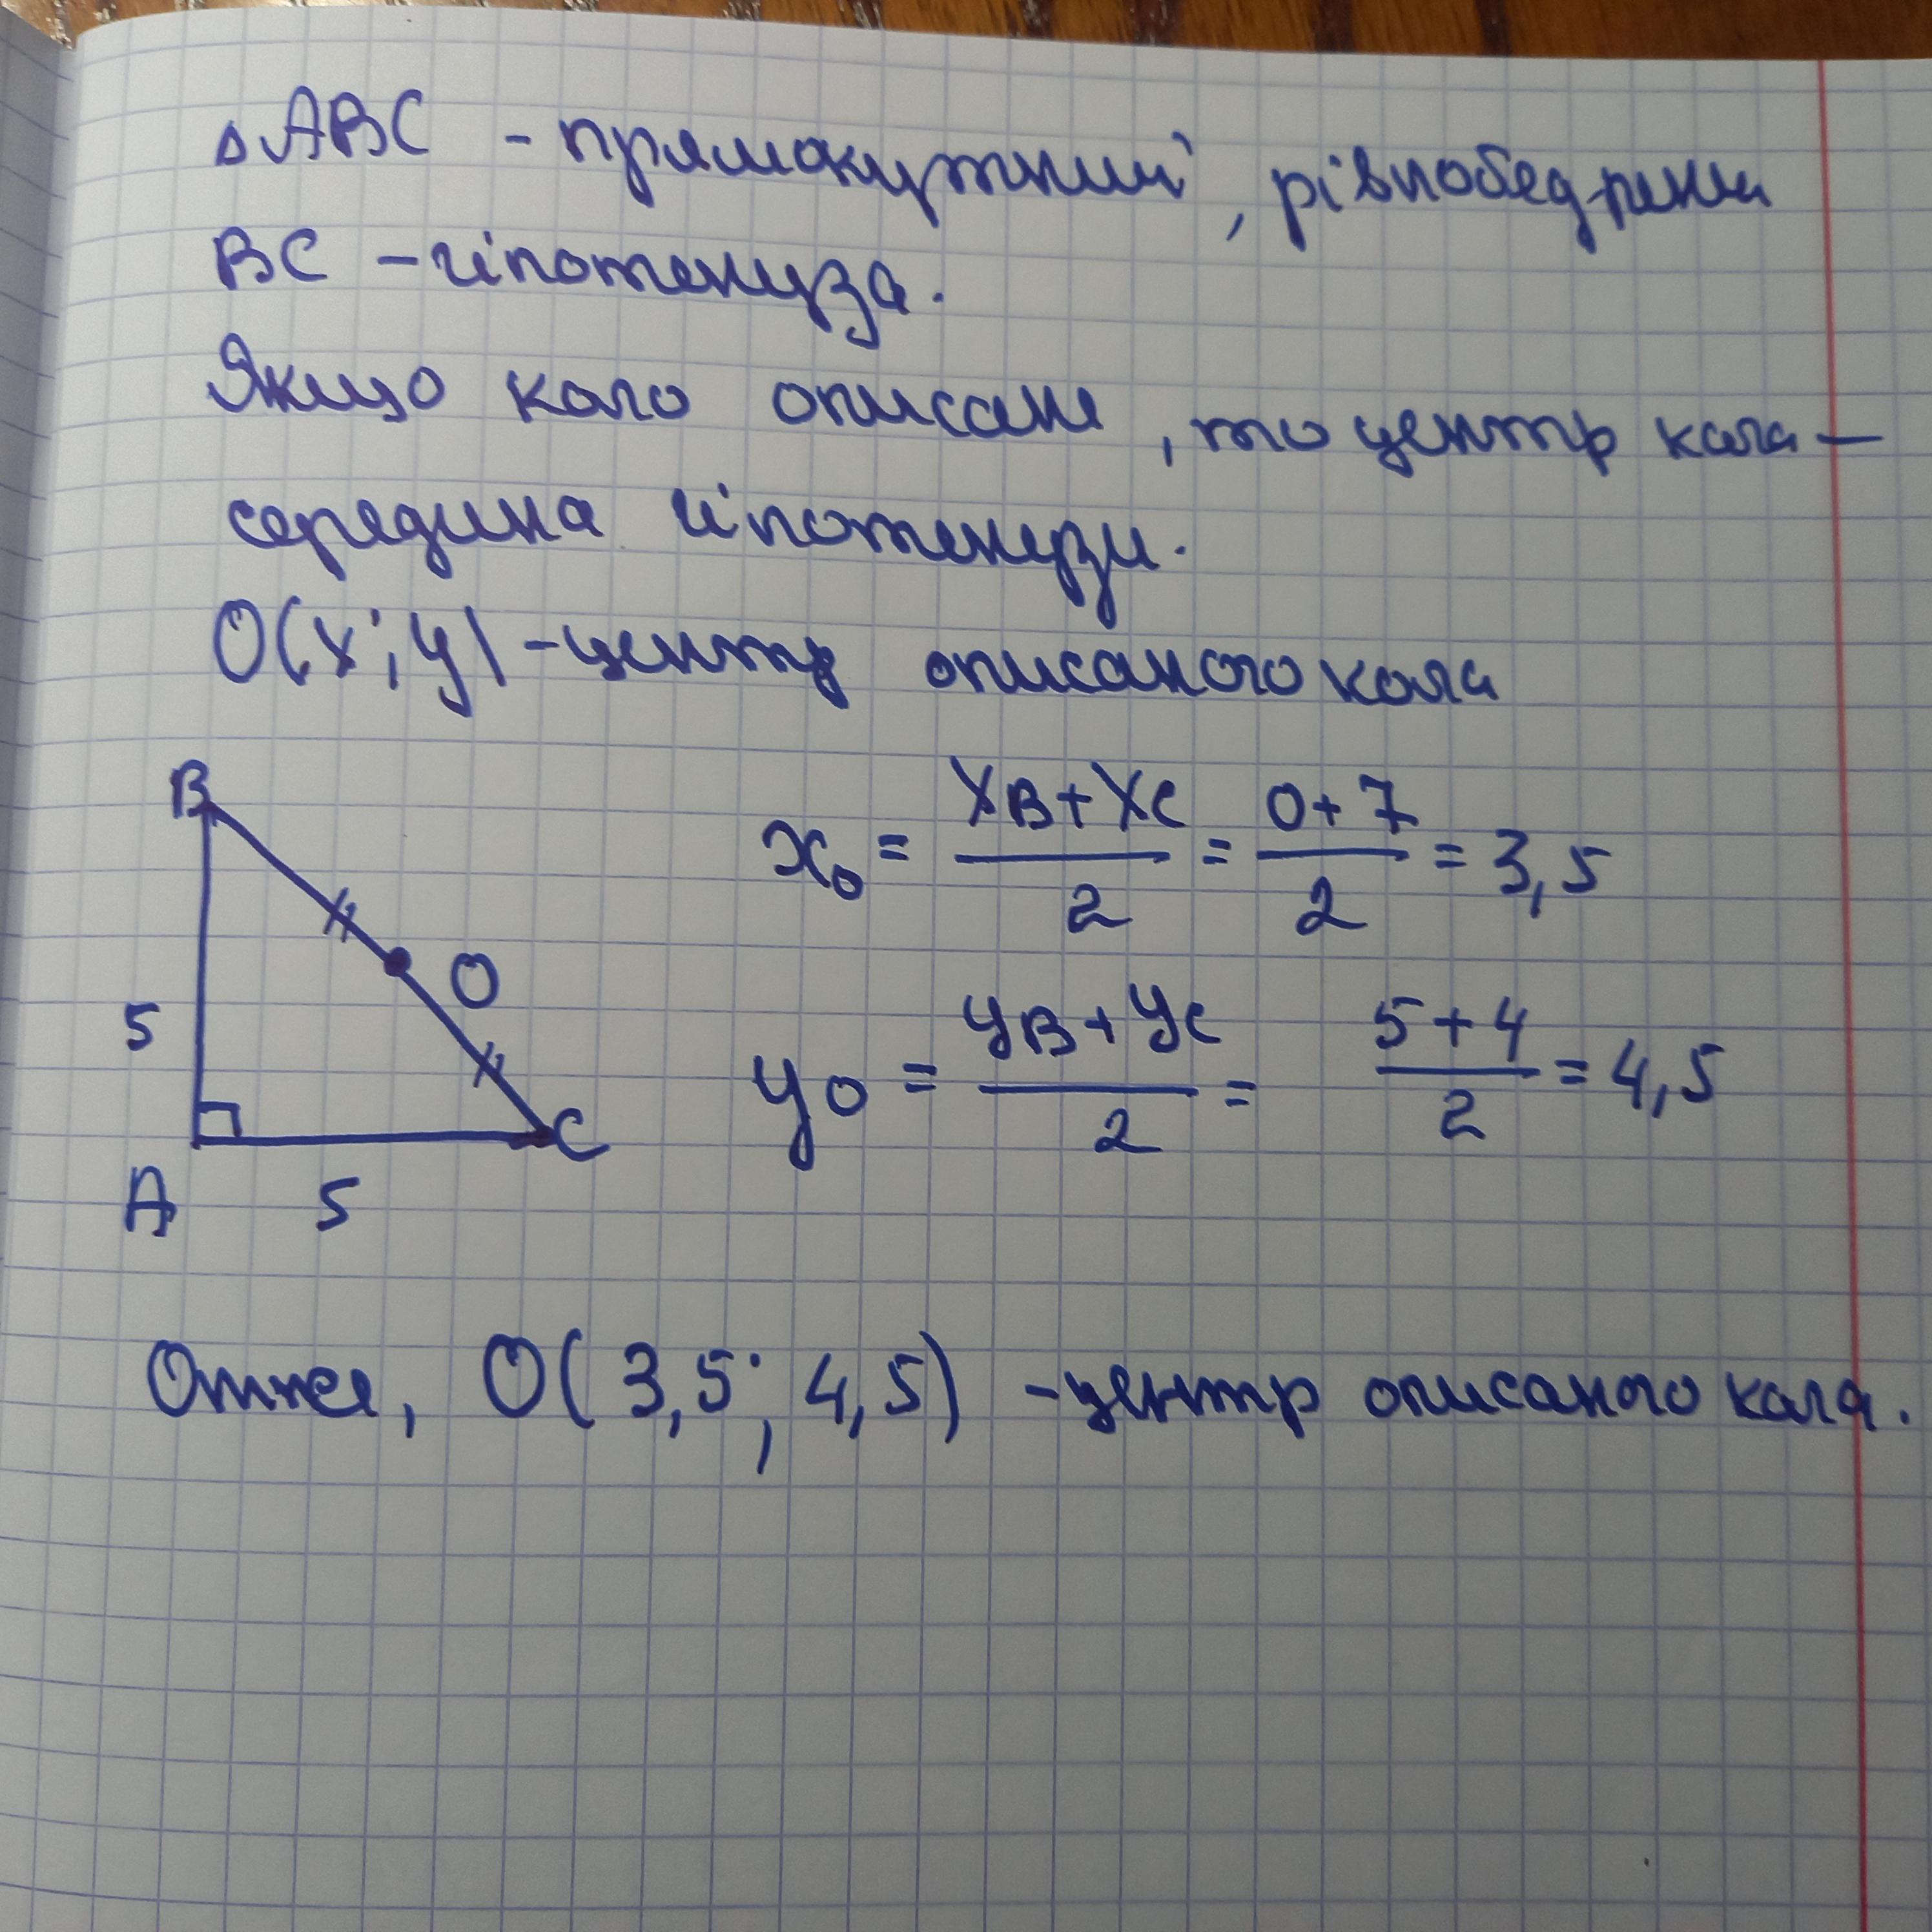 △ABC - прямокутний, рівнобедрений
BC - гіпотенуза.
Якщо коло описане, то центр кола —
середина гіпотенузи.
O(x; y) - центр описаного кола
B
O
5
A
5
C
x₀ = (xB + xC)/2 = (0+7)/2 = 3,5
y₀ = (yB + yC)/2 = (5+4)/2 = 4,5
Отже, O(3,5; 4,5) - центр описаного кола.